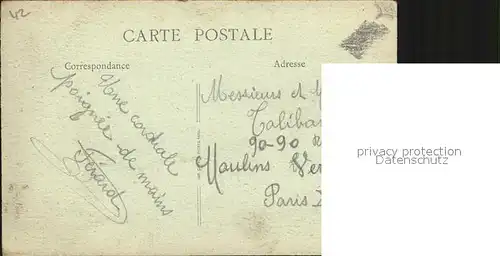 42
CARTE POSTALE
Correspondance
Adresse
Une cordiale
poignée de mains
Férard
Messieurs et
Taliba
90-90
Moulins Ver
Paris
privacy protection
Datenschutz